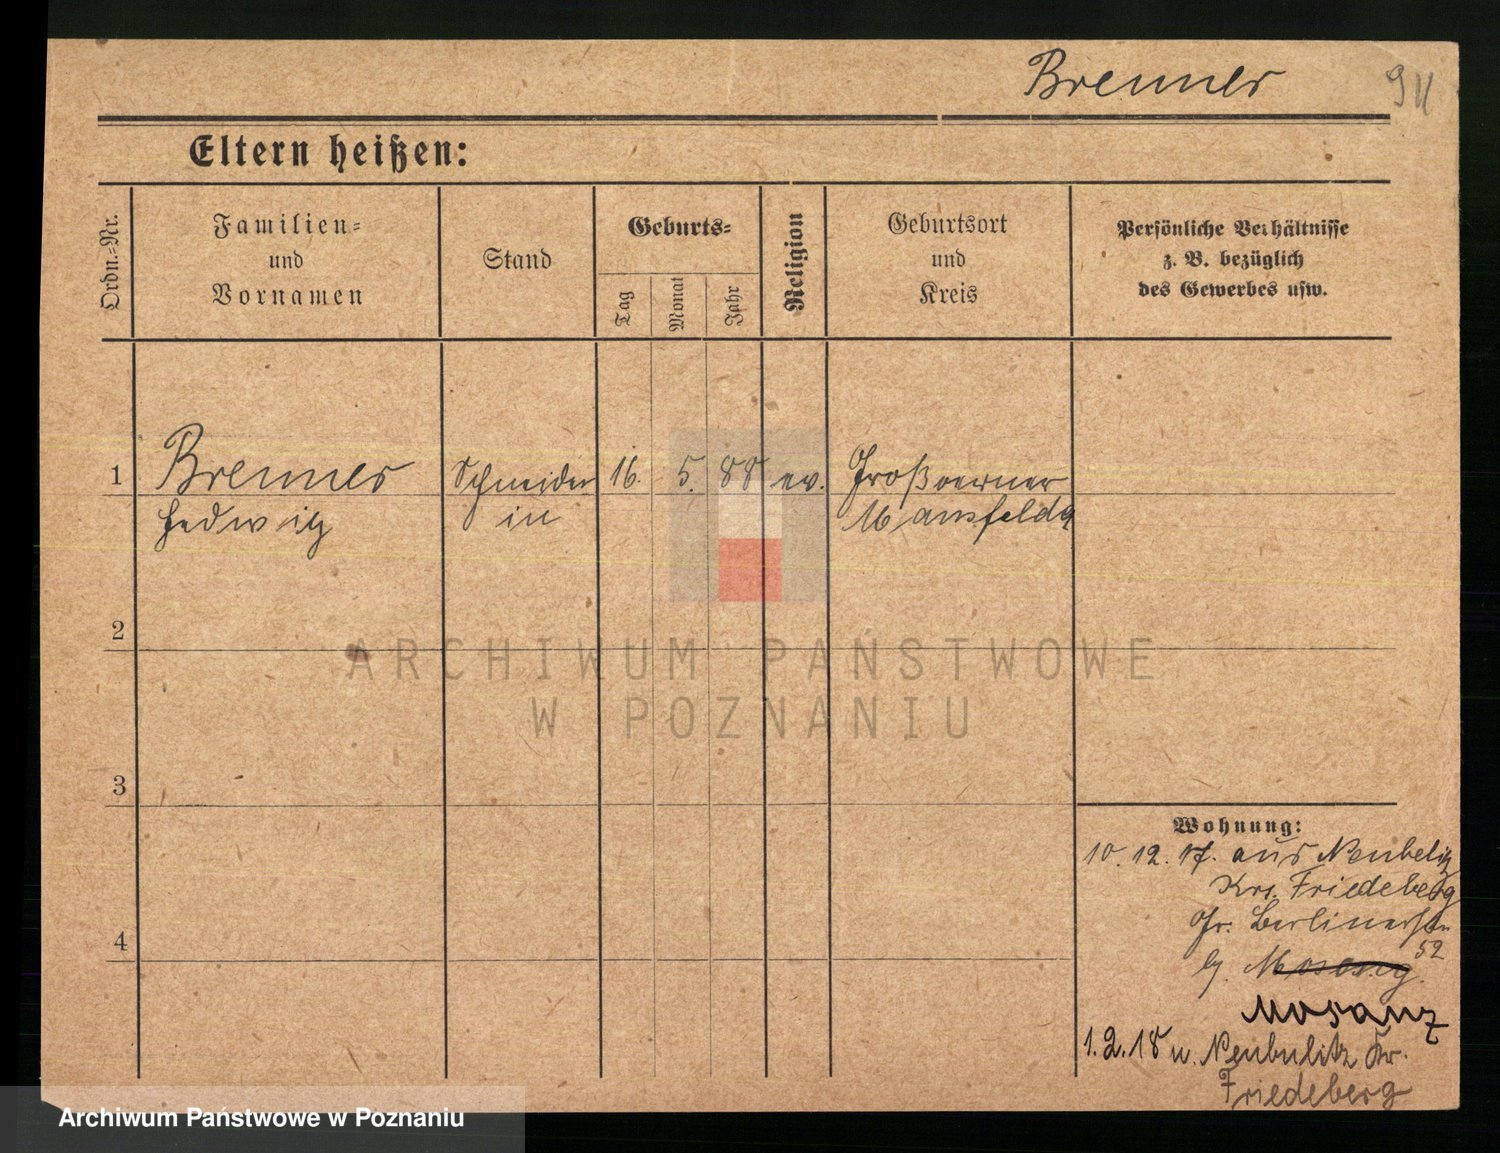 Brenner 94
Eltern heißen:
Ordn.-Nr.
Familien- und Vornamen
Stand
Geburts-
Tag
Monat
Jahr
Religion
Geburtsort und Kreis
Persönliche Verhältnisse
z. B. bezüglich
des Gewerbes usw.
1 Brenner Schneider 16. 5. 88 ev. Großoerner
Hedwig in Mansfeld
2
ARCHIWUM PAŃSTWOWE
W POZNANIU
3
Wohnung:
10. 12. 17. aus Neubelitz
Krs. Friedeberg
Gr. Berlinerstr.
52
4
b. Mosanz
Mosanz
1.2.18 n. Neubelitz Kr.
Friedeberg
Archiwum Państwowe w Poznaniu